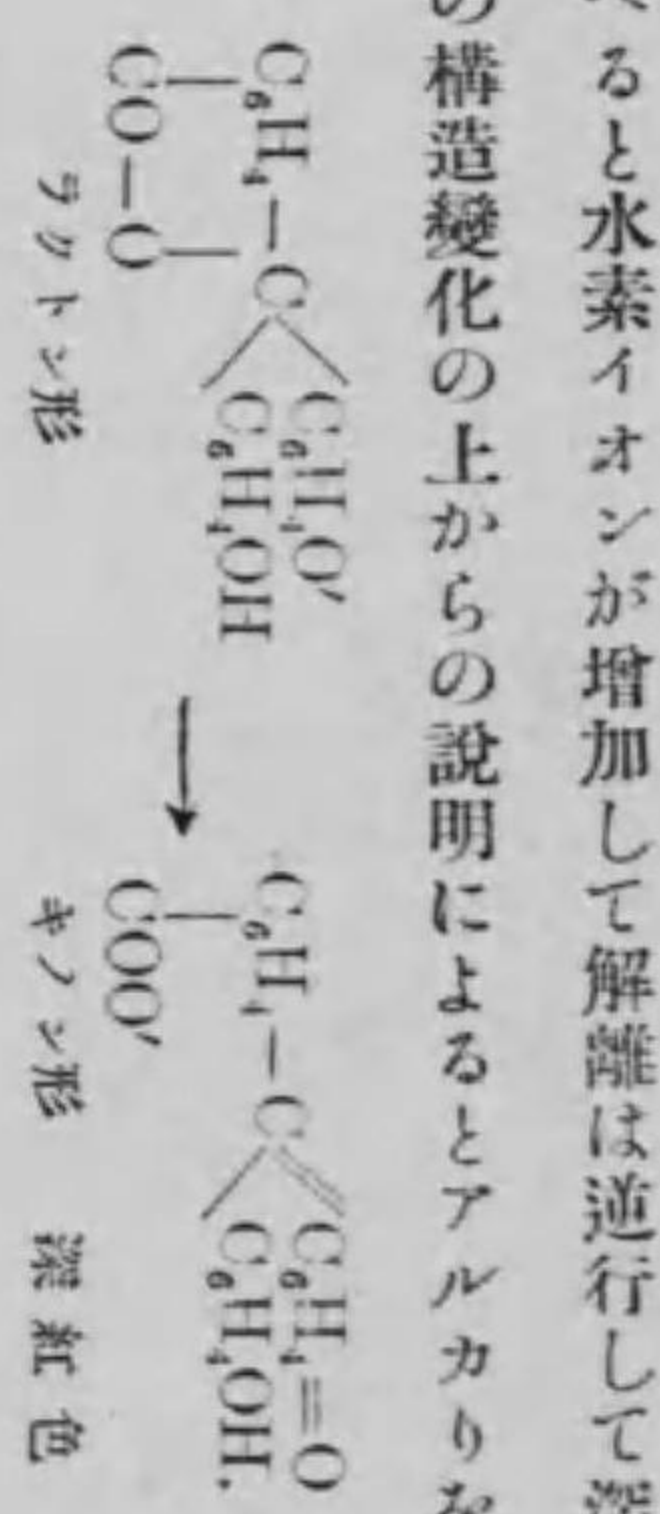 ると水素イオンが増加して解離は逆行して深
の構造變化の上からの説明によるとアルカリを
C₆H₄—C C₆H₄O′
C₆H₄OH
CO—O
ラクトン形
→
C₆H₄—C C₆H₄=O
C₆H₄OH.
COO′
キノン形 深紅色